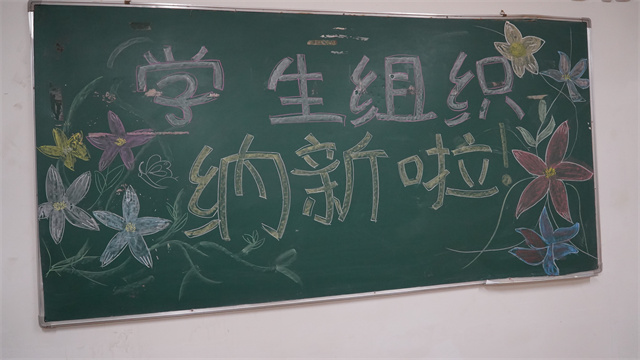 学生组织
纳新啦!